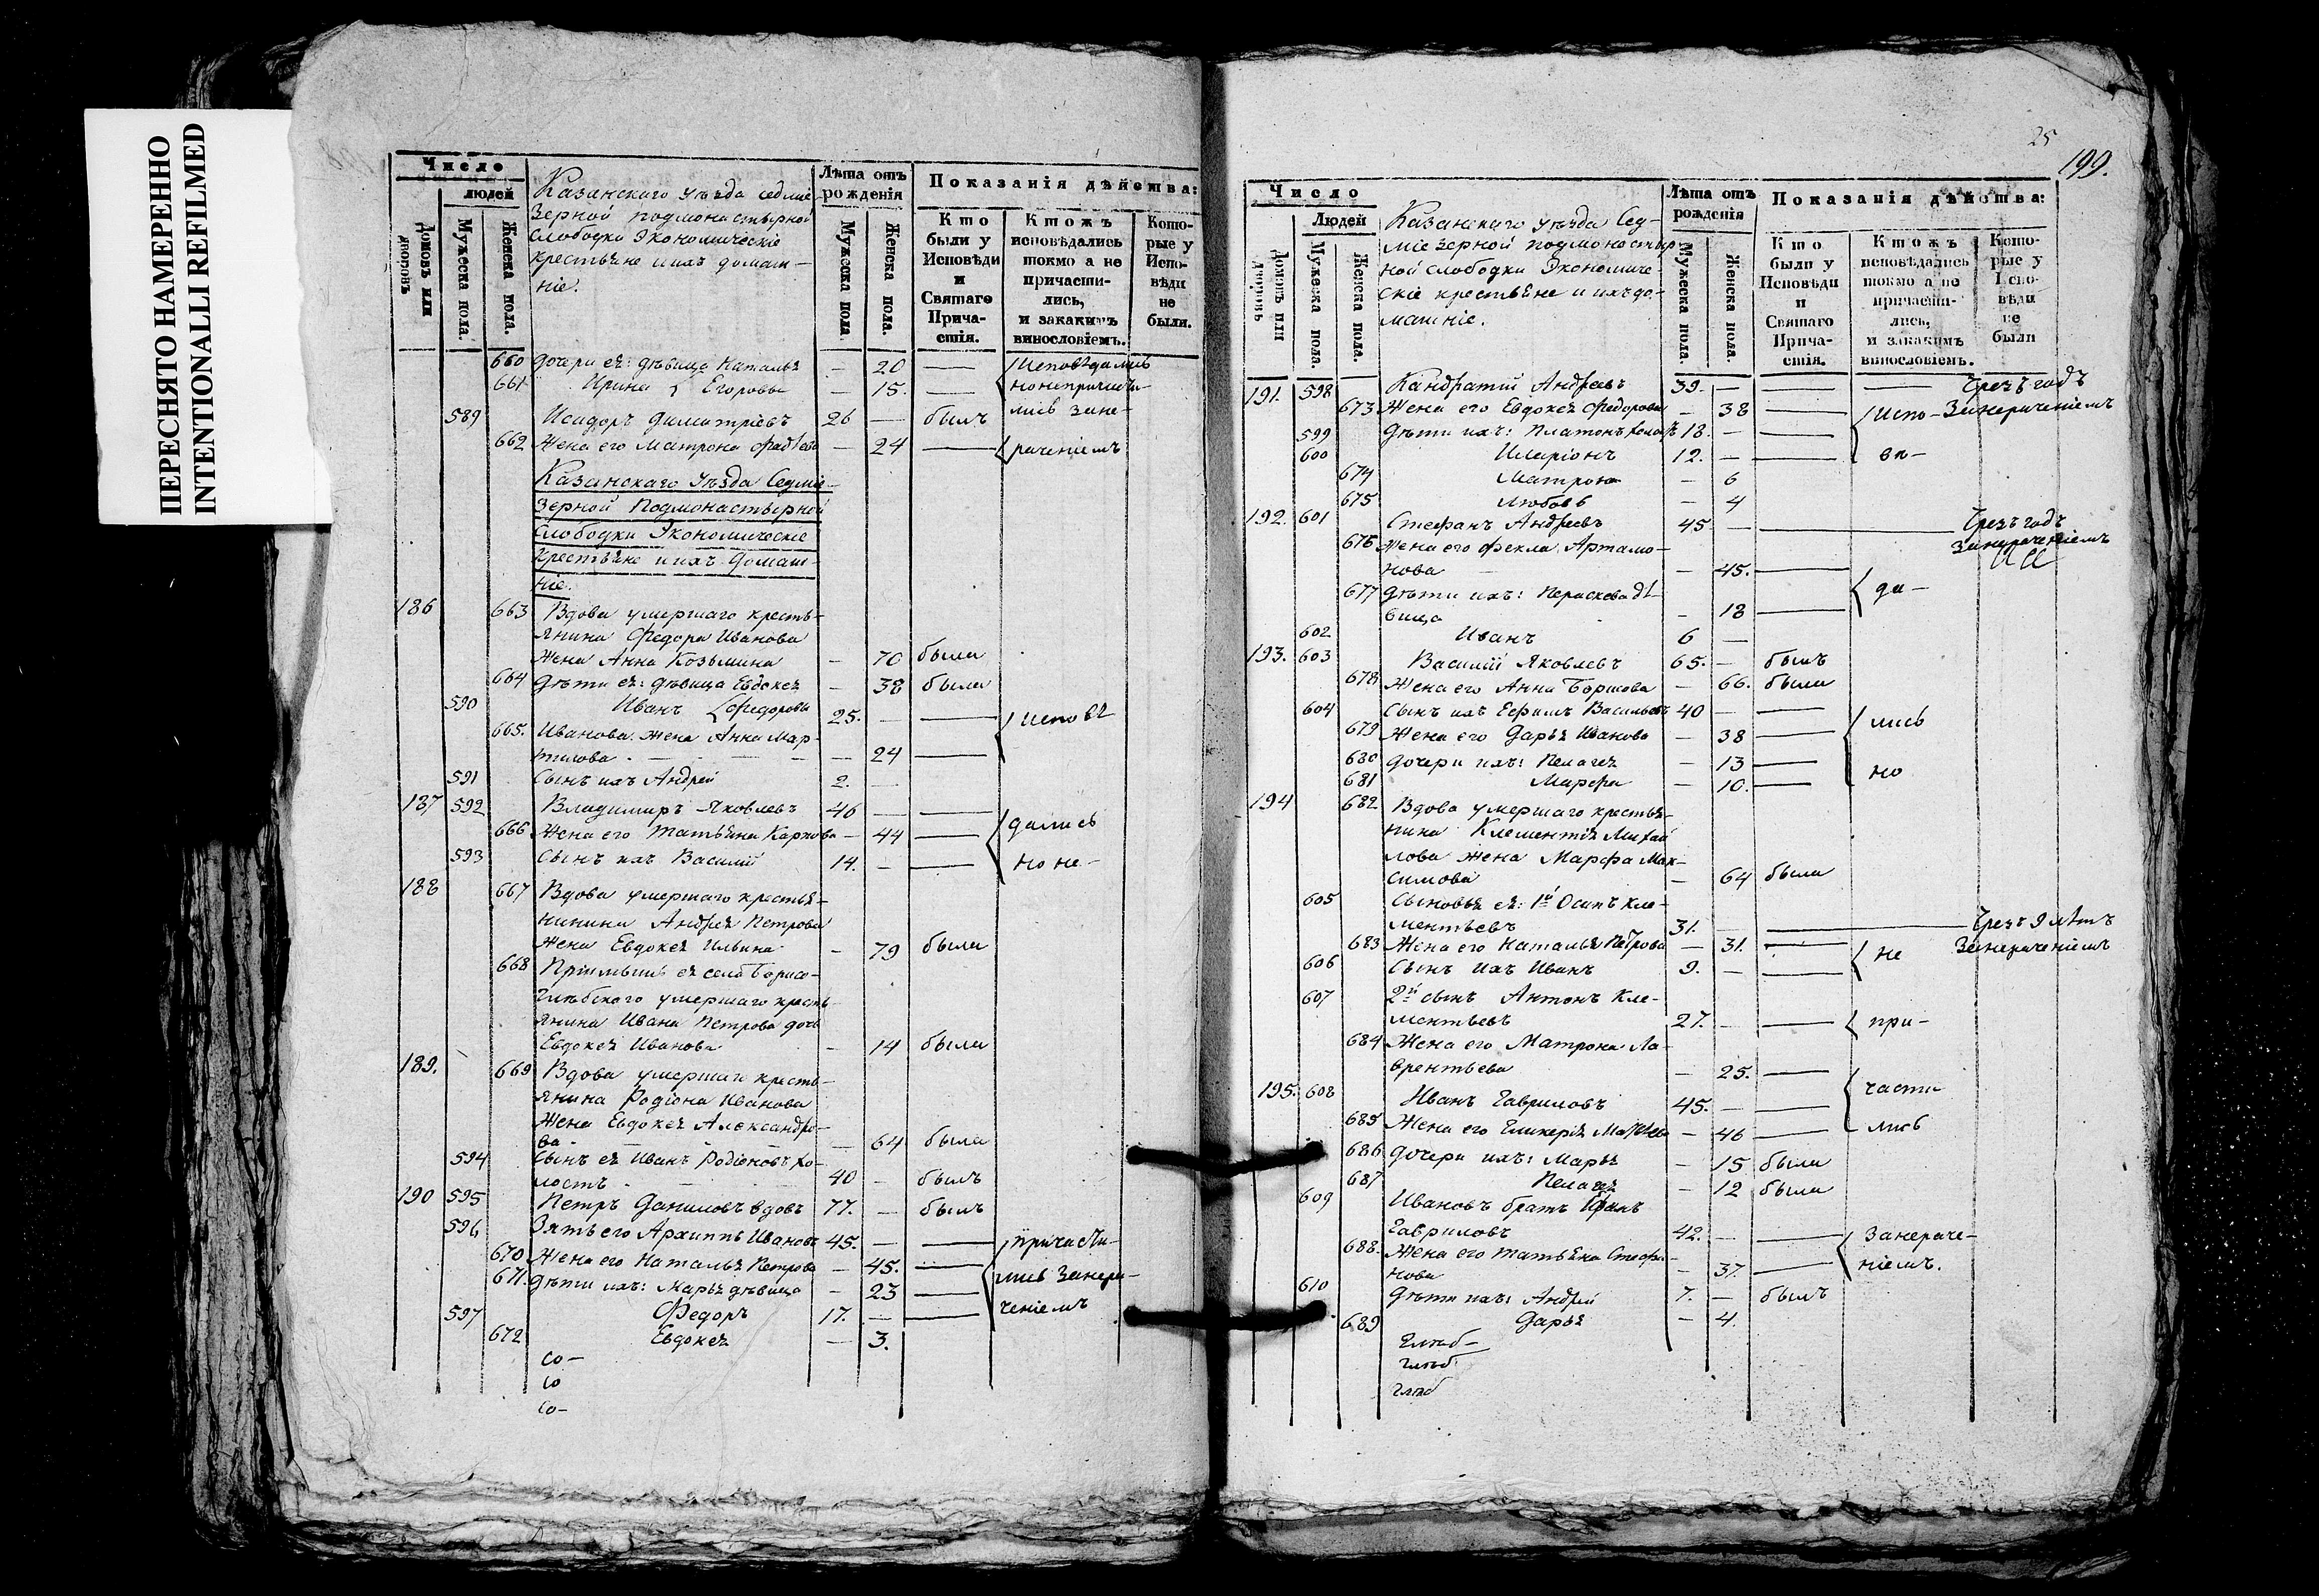 ПЕРЕСНЯТО НАМЕРЕННО
INTENTIONALLI REFILMED
Число
людей
Домовъ или дворовъ
Мужеска пола.
Женска пола.
Казанскаго уѣзда седміе
зерной подмонастырной
слободки Экономическіе
крестьяне и ихъ домаш-
ніе.
Лѣта отъ рожденія
Мужеска пола
Женска пола.
Показанія дѣйства:
Кто были у Исповѣди и Святаго Прича-стія.
Ктожъ исповѣдались токмо а не причасти-лись, и закакимъ винословіемъ.
Кото-рые у Испо-вѣди не были.
660 дочери ея: дѣвица Наталья — 20 — исповѣдались
661 Ирина Егоровы — 15. — но непричасти-
589 Исидоръ Димитріевъ 26 — былъ лись зане-
662 Жена его Матрона Фадѣева — 24 — раченіемъ
Казанскаго уѣзда Седміе-
зерной Подмонастырной
слободки Экономическіе
крестьяне и ихъ домаш-
ніе.
186 663 Вдова умершаго кресть-
янина Федора Иванова
жена Анна Козьмина — 70 была
664 дѣти ея: дѣвица Евдокея — 38 была
590 Иванъ Федоровы 25. — — исповѣ
665. Иванова жена Анна Мар-
тилова — 24 —
591 Сынъ ихъ Андрей 2. —
187 592 Владимиръ Яковлевъ 46 — —
666 Жена его Татьяна Карпова — 44 — дались
593 Сынъ ихъ Василій 14. — — но не-
188 667 Вдова умершаго крестья-
нинина Андрея Петрова
жена Евдокея Ильина — 79 была
668 Пріимышъ ея села Борисо-
глѣбского умершаго кресть-
янина Ивана Петрова дочь
Евдокея Иванова — 14 была
189. 669 Вдова умершаго кресть-
янина Родіона Иванова
жена Евдокея Александро-
ва — 64 была
594 Сынъ ея Иванъ Родіоновъ хо-
лостъ 40 — былъ
190 595 Петръ Даниловъ вдовъ 77. — былъ
596 Зять его Архиппъ Ивановъ 45. — — причасти-
670 Жена его Наталья Петрова — 45. —
671. дѣти ихъ: Марья дѣвица — 23 — лись занера-
597 Федоръ 17. — — ченіемъ
672 Евдокея — 3.
со-
со
со-
25
199.
Число
Людей
Домовъ или дворовъ
Мужеска пола
Женска пола.
Казанскаго уѣзда Сед-
міезерной подмонастыр-
ной слободки Экономиче-
скіе крестьяне и ихъ до-
машніе.
Лѣта отъ рожденія
Мужеска пола.
Женска пола.
Показанія дѣйства:
Кто были у Исповѣди и Святаго Прича-стія.
Ктожъ исповѣдались токмо а не причасти-лись, и закакимъ винословіемъ.
Кото-рые у Испо-вѣди не были
191. 598 Кандратій Андреевъ 39. — — — Чрезъ годъ
673 Жена его Евдокея Федорова — 38 — испо- Занераченіемъ
599 дѣти ихъ: Платонъ холостъ 18. — —
600 Иларіонъ 12. — — вѣ-
674 Матрона — 6
675 Любовь — 4
192. 601 Стефанъ Андреевъ 45 — — Чрезъ годъ
676 Жена его Фекла Артамо- Занераченіемъ
нова — 45. —
677 дѣти ихъ: Параскева дѣ- да-
вица — 18 —
602 Иванъ 6 —
193. 603 Василій Яковлевъ 65. — былъ
678 Жена его Анна Борисова — 66. была
604 Сынъ ихъ Ефимъ Васильевъ 40 — — лись
679 Жена его Дарья Иванова — 38 —
680 дочери ихъ: Пелагея — 13 — но
681 Марфа — 10. —
194 682 Вдова умершаго крестья-
нина Клементія Михай
лова жена Марфа Мак-
симова — 64 была
605 Сыновья ея: 1й Осипъ Кле-
ментьевъ 31. — — Чрезъ 9 лѣтъ
683 Жена его Наталья Петрова — 31. — не Занераченіемъ
606 Сынъ ихъ Иванъ 9. — —
607 2й сынъ Антонъ Кле-
ментьевъ 27. — — при-
684 Жена его Матрона Ла-
врентьева — 25. —
195. 608 Иванъ Гавриловъ 45. — — части
685 Жена его Гликерія Матвеева — 46 — лись
686 дочери ихъ: Марья — 15 была
687 Пелагея — 12 была
609 Ивановъ братъ Иванъ
Гавриловъ 42. — — Занераче-
688. Жена его Татьяна Стефа-
нова — 37. — ніемъ.
610 дѣти ихъ: Андрей 7. — былъ
689 Дарья — 4.
Глѣб-
глѣб
глѣб